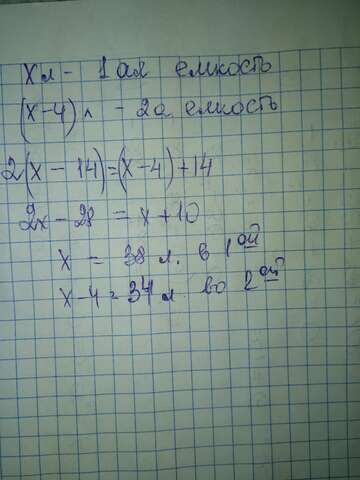 Xл - 1ая емкость
(x-4)л - 2а емкость
2(x-14)=(x-4)+14
2x-28 = x+10
x = 38 л. в 1ой
x-4=34 л во 2ой